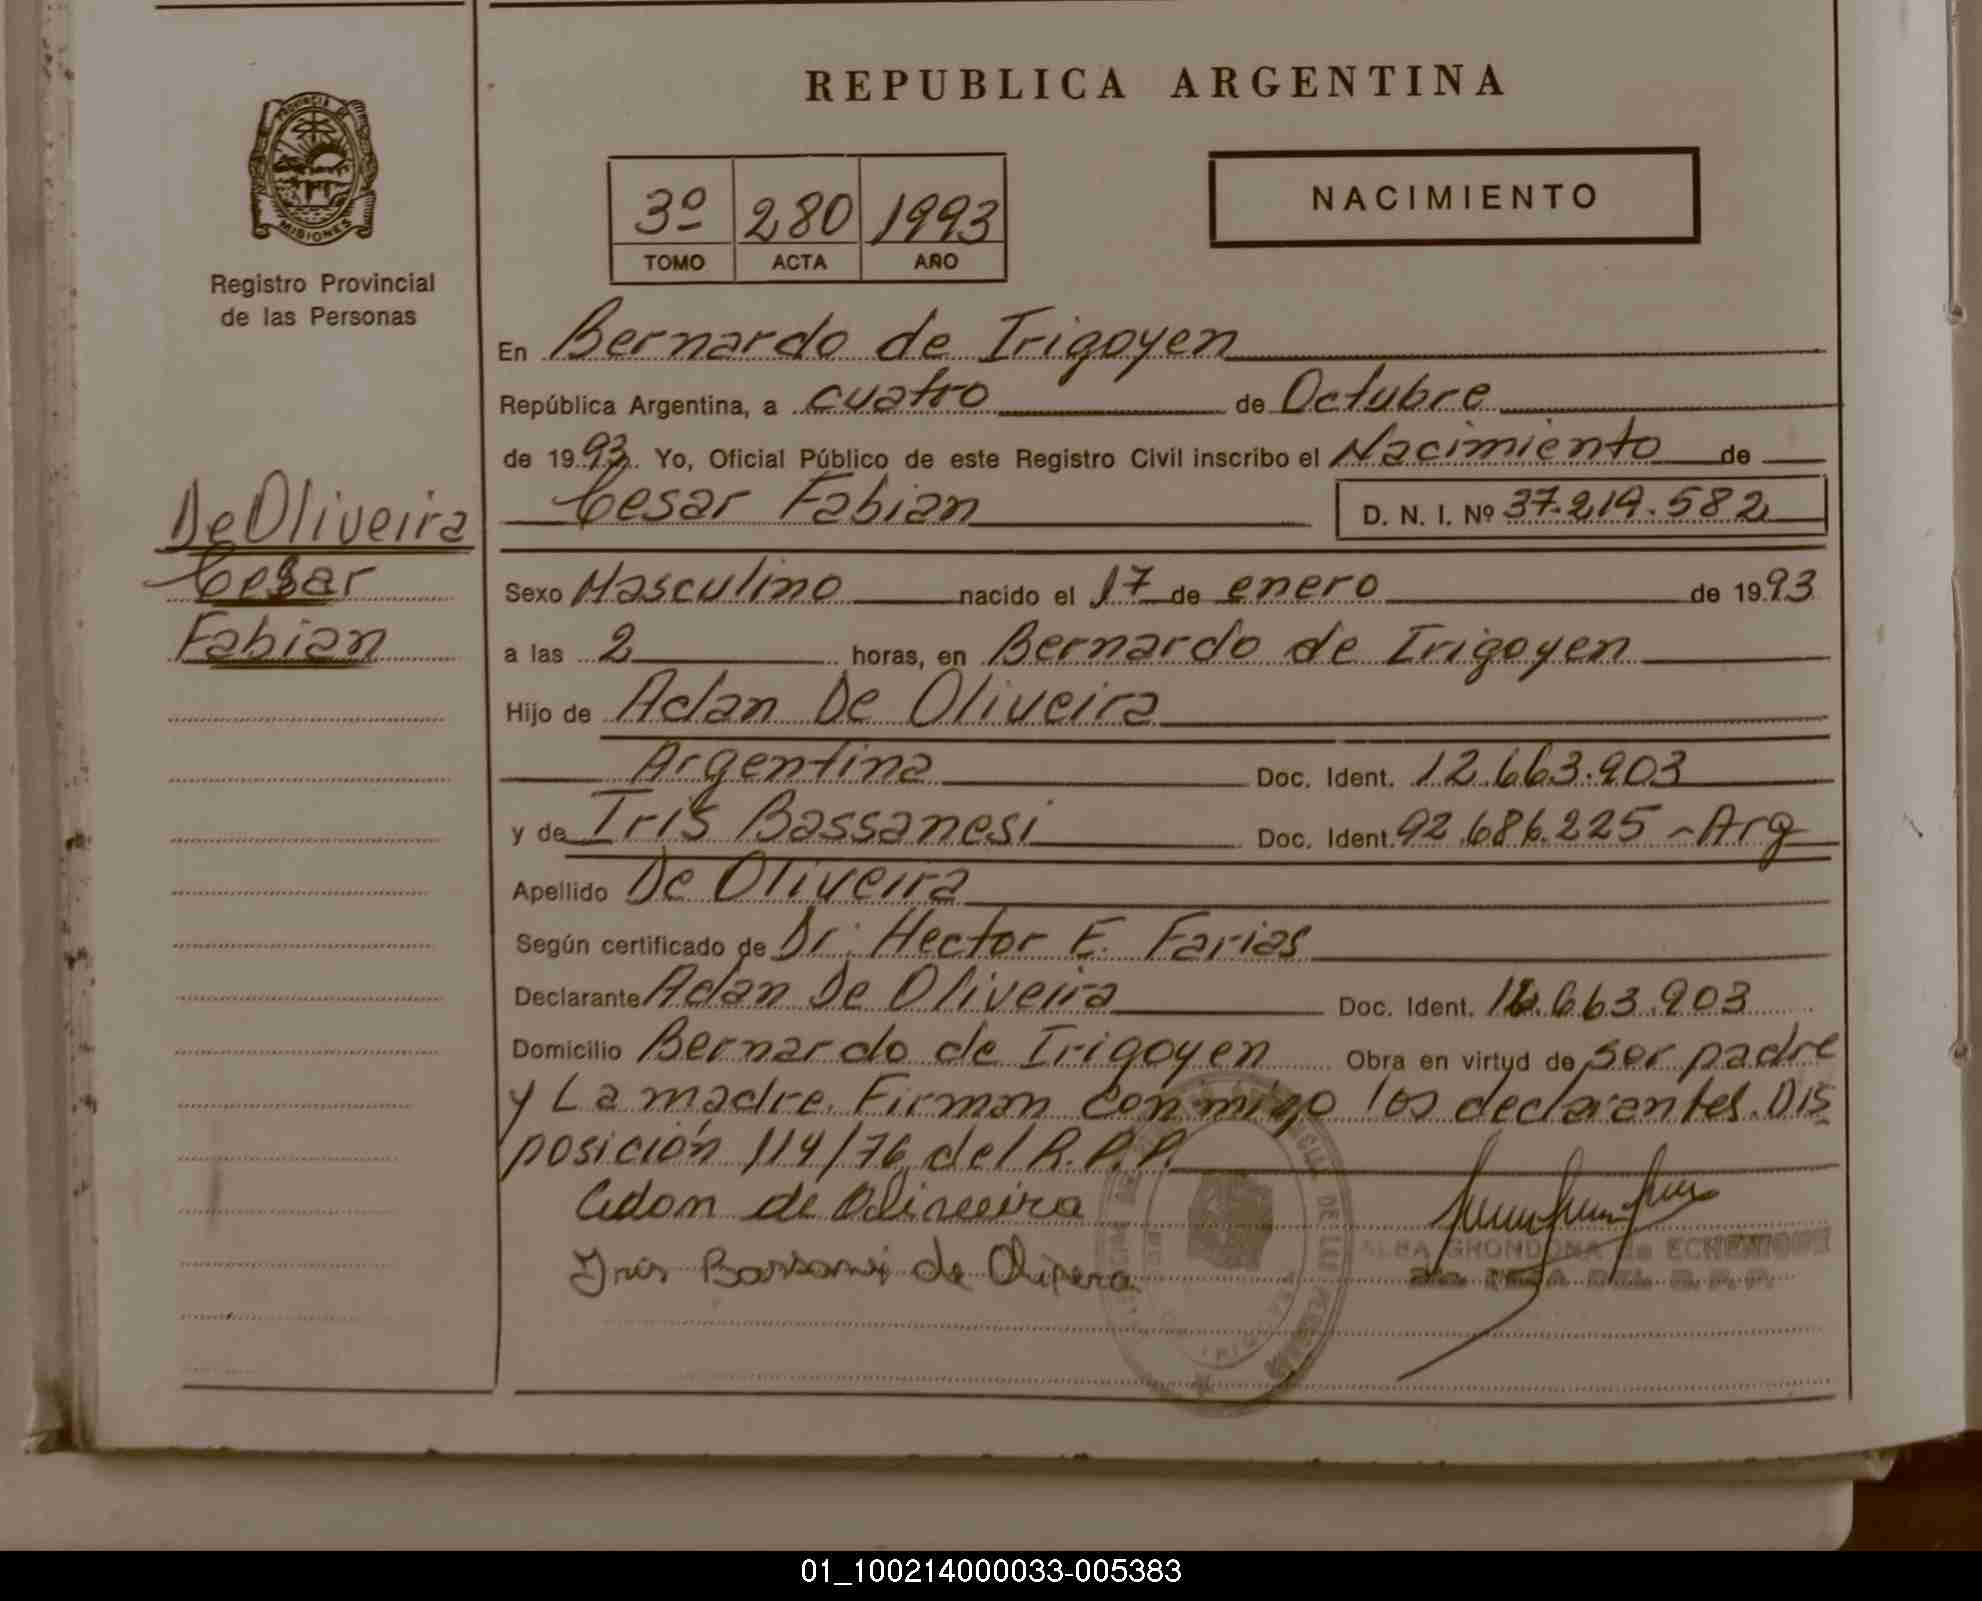 REPUBLICA ARGENTINA
PROVINCIA DE
MISIONES
Registro Provincial
de las Personas
3º 280 1993
TOMO ACTA AÑO
NACIMIENTO
De Oliveira
Cesar
Fabian
En Bernardo de Irigoyen
República Argentina, a cuatro de Octubre
de 1993. Yo, Oficial Público de este Registro Civil inscribo el Nacimiento de
Cesar Fabian D. N. I. Nº 37.219.582
Sexo Masculino nacido el 17 de enero de 1993
a las 2 horas, en Bernardo de Irigoyen
Hijo de Adan De Oliveira
Argentina Doc. Ident. 12.663.903
y de Iris Bassanesi Doc. Ident. 92.686.225 - Arg
Apellido De Oliveira
Según certificado de Dr. Hector E. Farias
Declarante Adan De Oliveira Doc. Ident. .663.903
Domicilio Bernardo de Irigoyen Obra en virtud de ser padre
y La madre. Firman Conmigo los declarantes. Dis
posición 114/76 del R.P.P.
Adan de Oliveira
Iris de
ALBA GRONDONA de ECHENIQUE
DEL R.P.P.
01_100214000033-005383